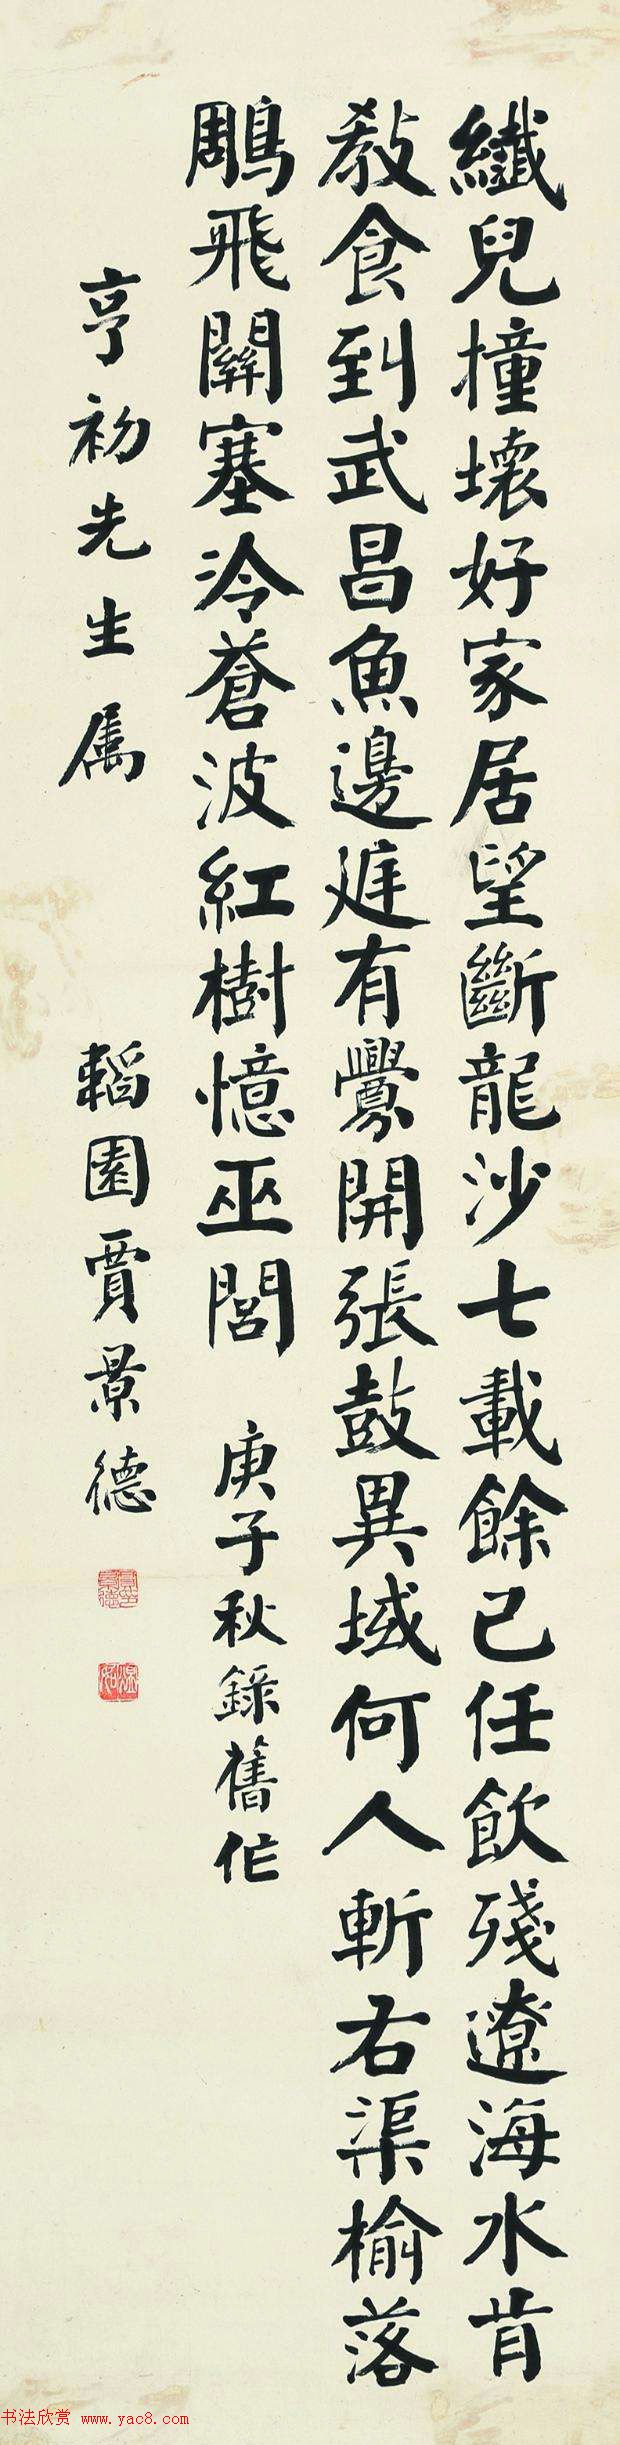 纖兒撞壞好家居望斷龍沙七載餘已任飲殘遼海水肯
教食到武昌魚邊廷有釁開張鼓異域何人斬右渠榆落
鵰飛關塞冷蒼波紅樹憶巫閭 庚子秋錄舊作
亨初先生属 韜園賈景德
书法欣赏 www.yac8.com